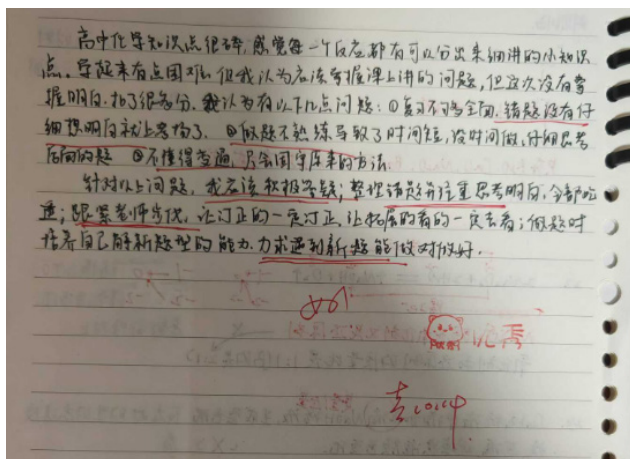 高中化学知识点很碎,感觉每一个反应都有可以分出来细讲的小知识
点。学起来有点困难,但我认为应该掌握课上讲的问题,但这次没有掌
握明白,扣了很多分。我认为有以下几点问题:①复习不够全面,错题没有仔
细想明白就上考场了。②做题不熟练导致了时间短,没时间做、仔细思考
后面的题 ③不懂得变通,只会固守原来的方法
针对以上问题,我应该积极答疑;整理错题并注重思考明白,全部吃
透;跟紧老师步伐,让订正的一定订正,让拓展的看的一定去看;做题时
培养自己解新题型的能力,力求遇到新题能做对做好.
加油
优秀